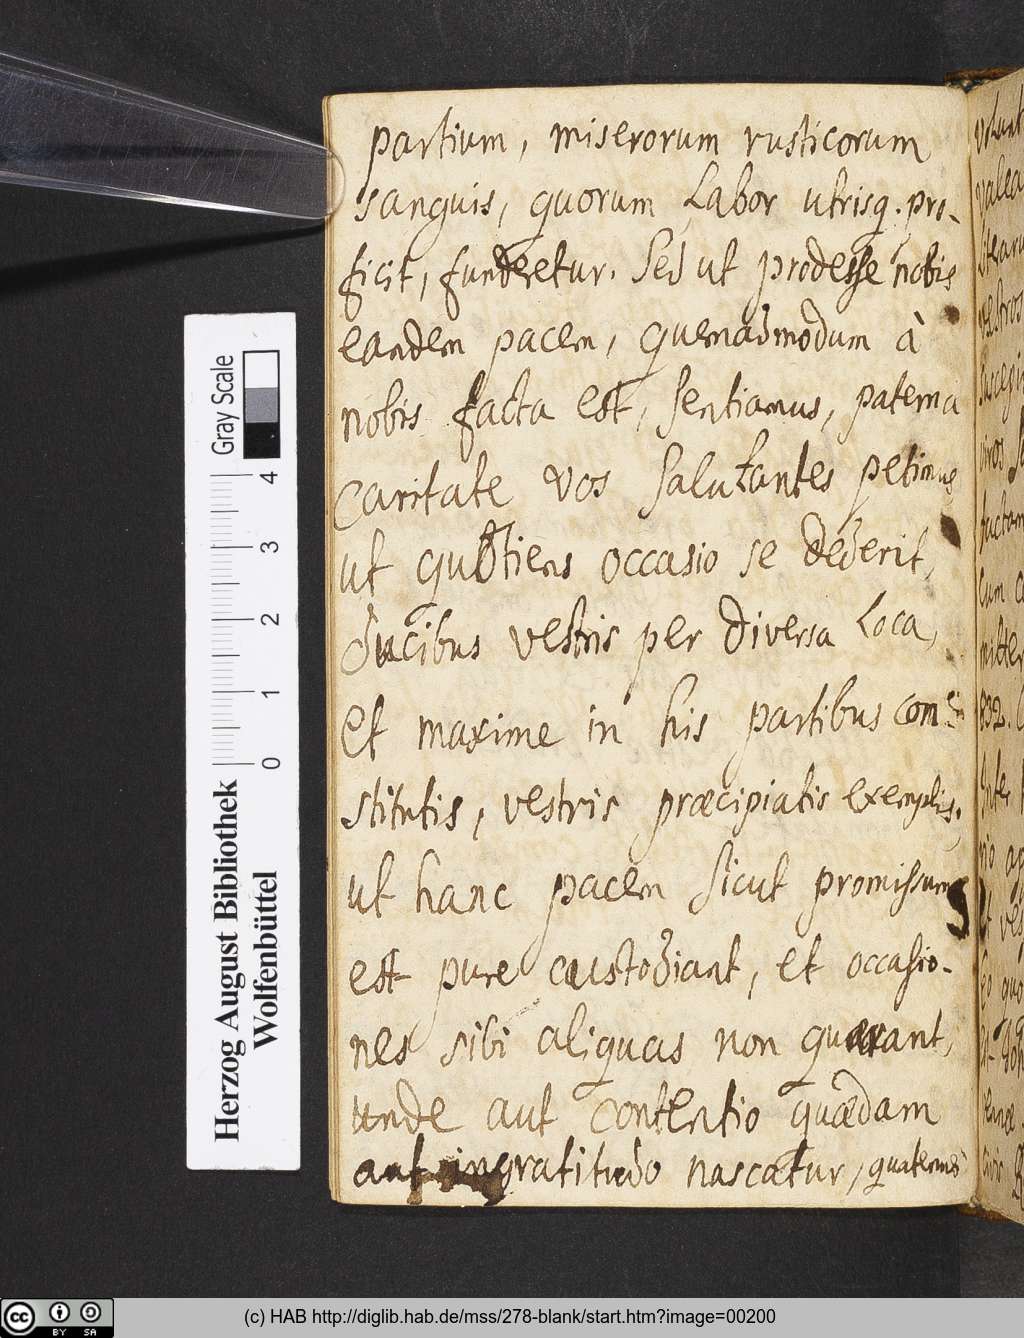 partium, miserorum rusticorum
sanguis, quorum Labor utrisq. pro-
ficit, funderetur. Sed ut prodesse nobis
eandem pacem, quemadmodum à
nobis facta est, sentiamus, paterna
caritate vos salutantes petimus
ut quotiens occasio se dederit,
ducibus vestris per diversa Loca,
Et maxime in his partibus con-
stitutis, vestris præcipiatis exemplis,
ut hanc pacem sicut promissum
est pure custodiant, et occasio-
nes sibi aliquas non quærant,
unde aut contentio quædam
aut ingratitudo nascatur, quatenus
Gray Scale
0 1 2 3 4
Herzog August Bibliothek
Wolfenbüttel
cc BY SA
(c) HAB http://diglib.hab.de/mss/278-blank/start.htm?image=00200